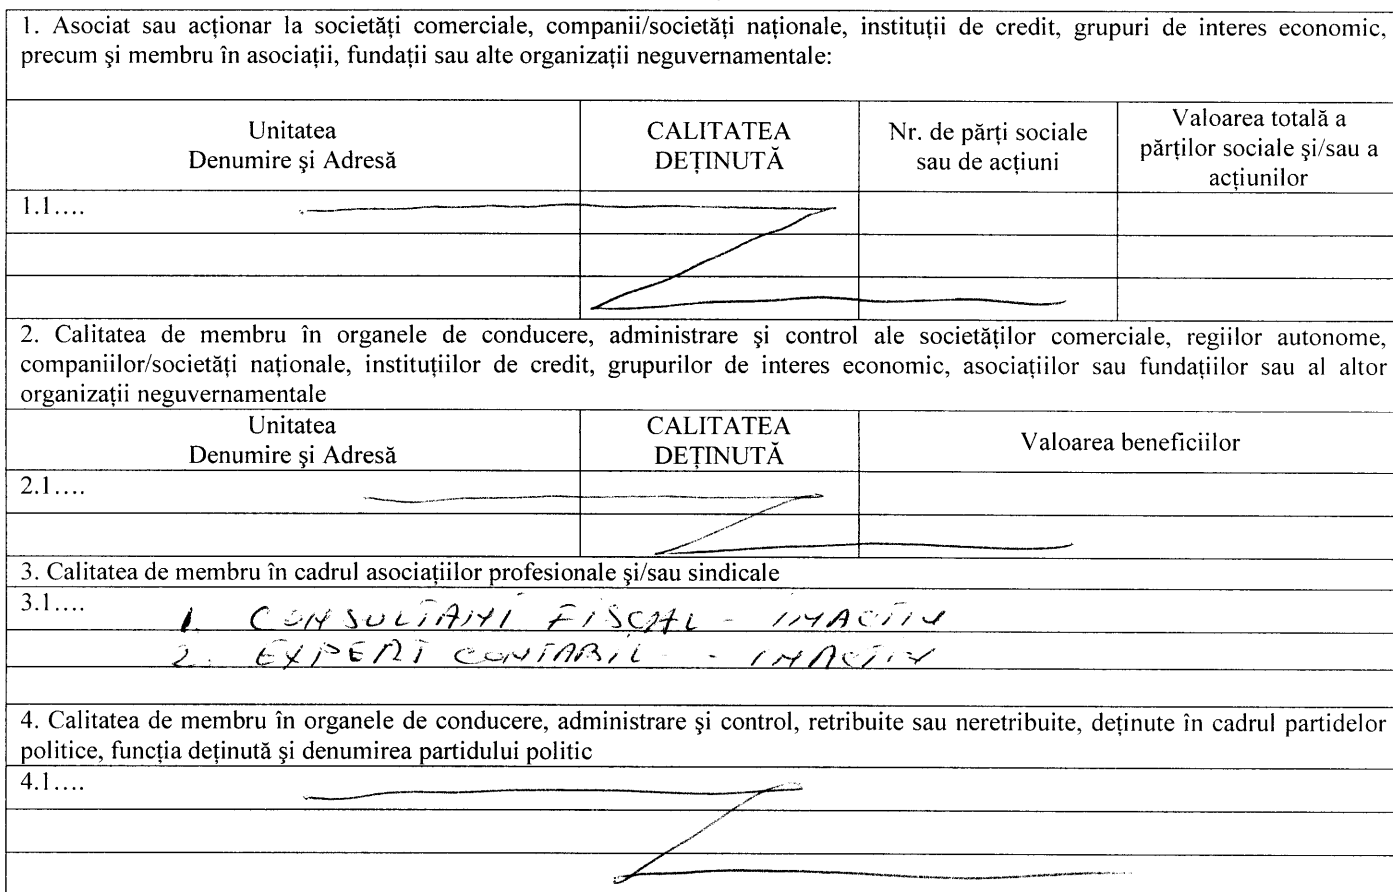 1. Asociat sau acționar la societăți comerciale, companii/societăți naționale, instituții de credit, grupuri de interes economic,
precum şi membru în asociații, fundații sau alte organizații neguvernamentale:
Unitatea
Denumire şi Adresă
CALITATEA
DEȚINUTĂ
Nr. de părți sociale
sau de acțiuni
Valoarea totală a
părților sociale şi/sau a
acțiunilor
1.1....
2. Calitatea de membru în organele de conducere, administrare şi control ale societăților comerciale, regiilor autonome,
companiilor/societăți naționale, instituțiilor de credit, grupurilor de interes economic, asociațiilor sau fundațiilor sau al altor
organizații neguvernamentale
Unitatea
Denumire şi Adresă
CALITATEA
DEȚINUTĂ
Valoarea beneficiilor
2.1....
3. Calitatea de membru în cadrul asociațiilor profesionale şi/sau sindicale
3.1....
1. CONSULTANT FISCAL - INACTIV
2. EXPERT CONTABIL - INACTIV
4. Calitatea de membru în organele de conducere, administrare şi control, retribuite sau neretribuite, deținute în cadrul partidelor
politice, funcția deținută şi denumirea partidului politic
4.1....